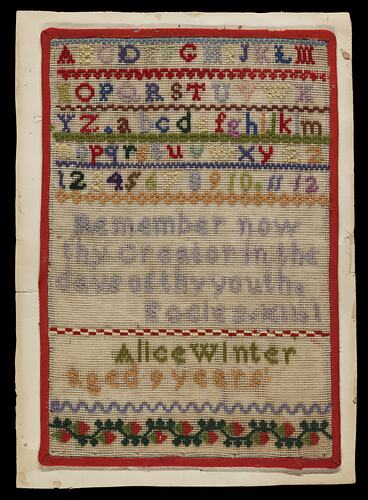 A B C D G H I J K L M
N O P Q R S T U V W X
Y Z . a b c d e f g h i j k l m
n o p q r s t u v w x y z
1 2 3 4 5 6 8 9 10 . 11 12
Remember now
thy Creator in the
days of thy youth.
Eccles. XII. 1
Alice Winter
aged 9 years